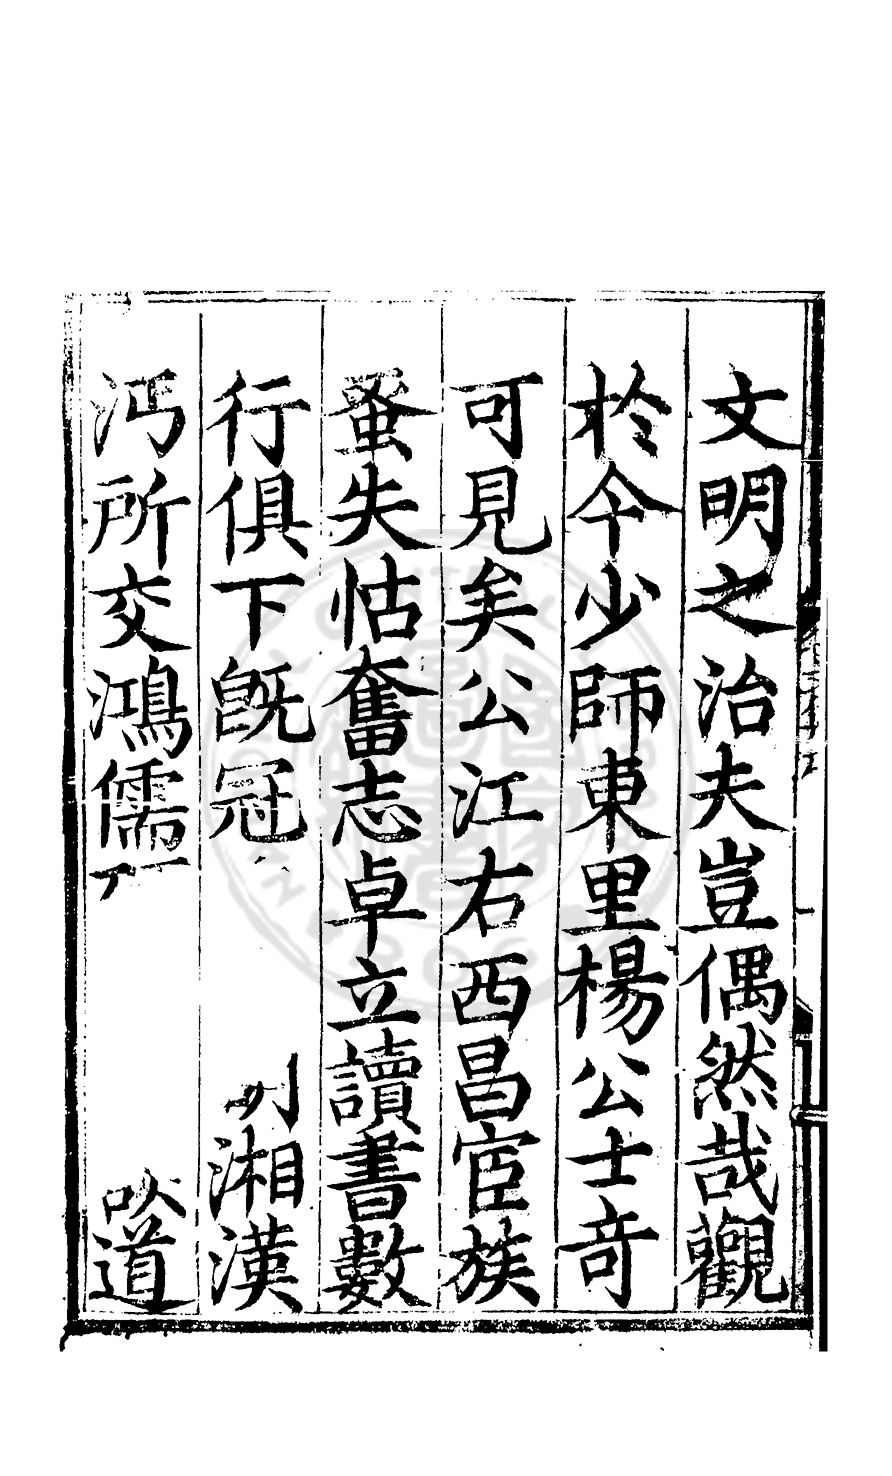 文明之治夫豈偶然哉觀
於今少師東里楊公士奇
可見矣公江右西昌宦族
蚤失怙奮志卓立讀書數
行俱下旣冠湘漢
沔所交鴻儒道